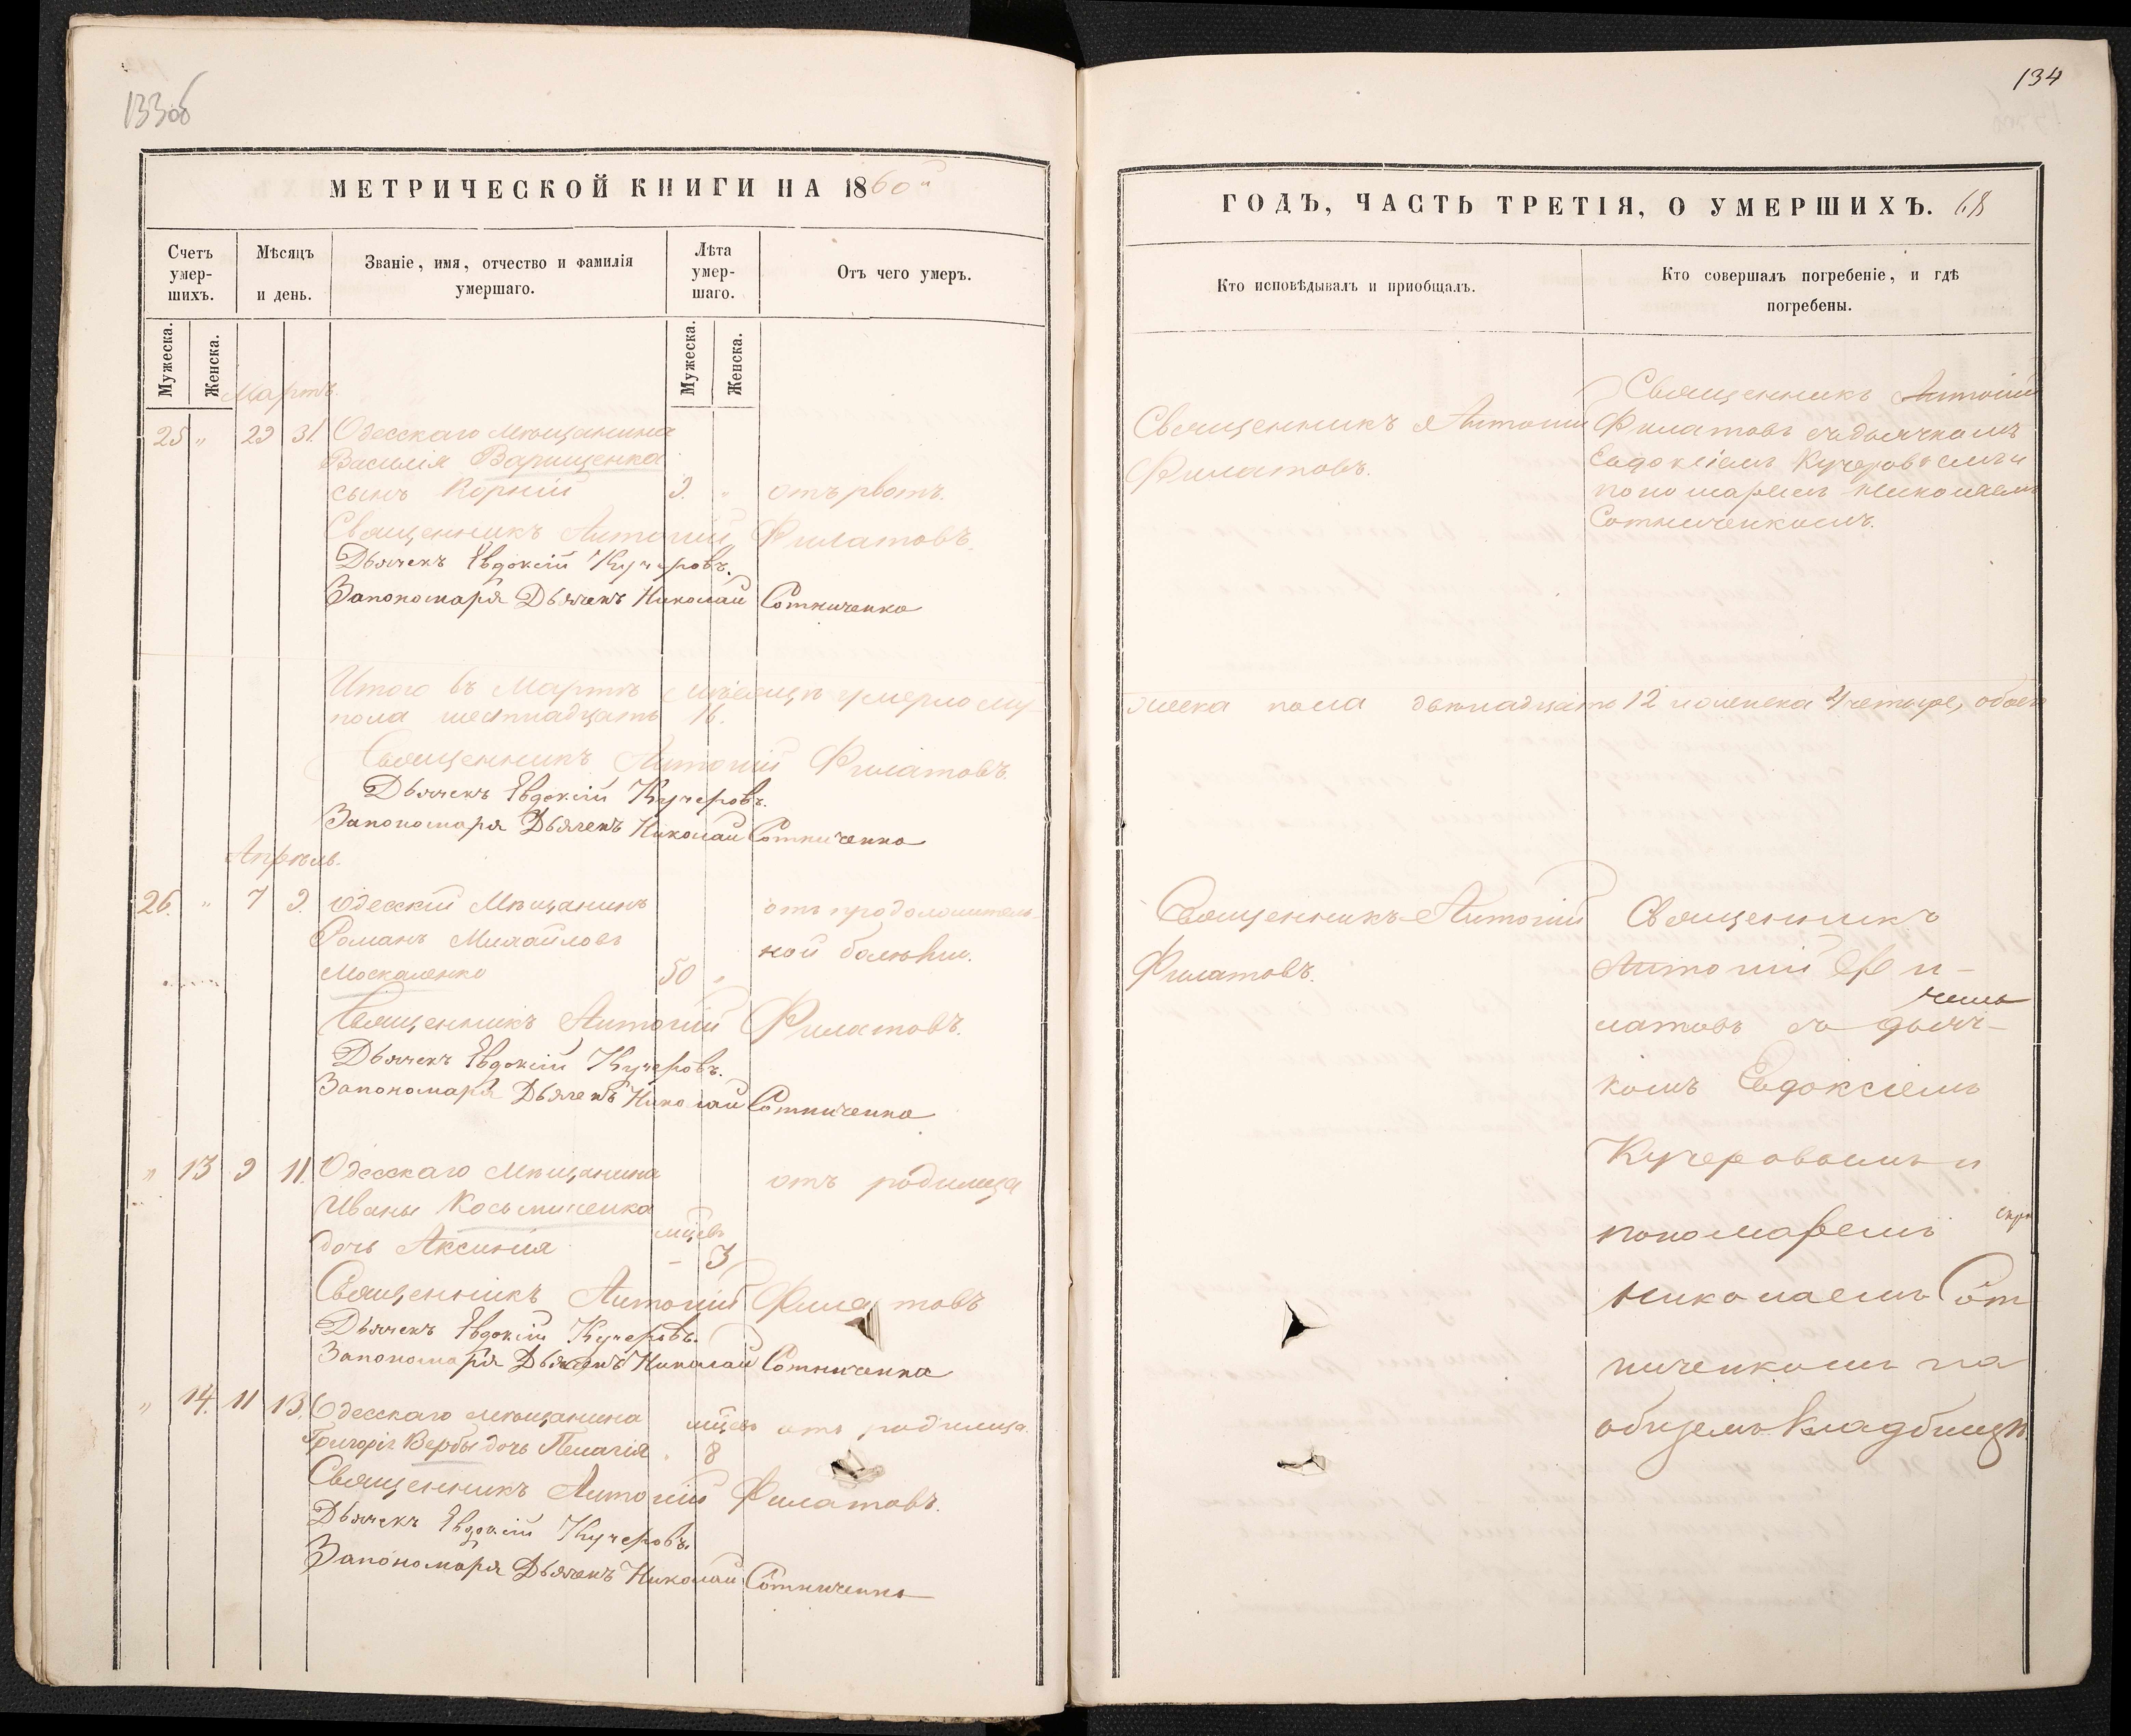 133об
МЕТРИЧЕСКОЙ КНИГИ НА 1860й
Счетъ умер-шихъ.
Мѣсяцъ и день.
Званіе, имя, отчество и фамилія умершаго.
Лѣта умер-шаго.
Отъ чего умеръ.
Мужеска.
Женска.
Мужеска.
Женска.
Мартъ.
25 " 29 31. Одесскаго мѣщанина
Василія Варищенка
сынъ Корній 9. " отъ рвотъ.
Священникъ Антоній Филатовъ.
Дьячекъ Евдокій Кучеровъ.
Запономаря Дьячекъ Николай Сотниченко
Итого въ Мартѣ мѣсяцѣ умерло му-
пола шестнадцать 16.
Священникъ Антоній Филатовъ.
Дьячекъ Евдокій Кучеровъ.
Запономаря Дьячекъ Николай Сотниченко
Апрѣль.
26. " 7 9. Одесскій Мѣщанинъ отъ продолжитель-
Романъ Михайловъ ной болѣзни.
Москаленко 50 "
Священникъ Антоній Филатовъ.
Дьячекъ Евдокій Кучеровъ.
Запономаря Дьячекъ Николай Сотниченко
" 13 9 11. Одесскаго Мѣщанина отъ родимца
Ивана Косьминенка
дочь Аксинія мцевъ 3
Священникъ Антоній Филатовъ
Дьячекъ Евдокій Кучеровъ.
Запономаря Дьячекъ Николай Сотниченко
" 14. 11 13. Одесскаго мѣщанина мцевъ отъ родимца.
Григорія Вербы дочь Пелагія . 8
Священникъ Антоній Филатовъ.
Дьячекъ Евдокій Кучеровъ.
Запономаря Дьячекъ Николай Сотниченко
134
ГОДЪ, ЧАСТЬ ТРЕТІЯ, О УМЕРШИХЪ. 68
Кто исповѣдывалъ и приобщалъ.
Кто совершалъ погребеніе, и гдѣ погребены.
Священникъ Антоній
Филатовъ.
Священникъ Антоній
Филатовъ съ дьячкомъ
Евдокіемъ Кучеровымъ и
пономаремъ Николаемъ
Сотниченкомъ.
жеска пола двѣнадцать 12 и женска 4 четыре, обоего
Священникъ Антоній
Филатовъ.
Священникъ
Антоній Фи-
латовъ съ дьяч-
комъ Евдоксіемъ
Кучеровымъ и
пономаремъ
Николаемъ Сот
ниченкомъ на
общемъ кладбищѣ